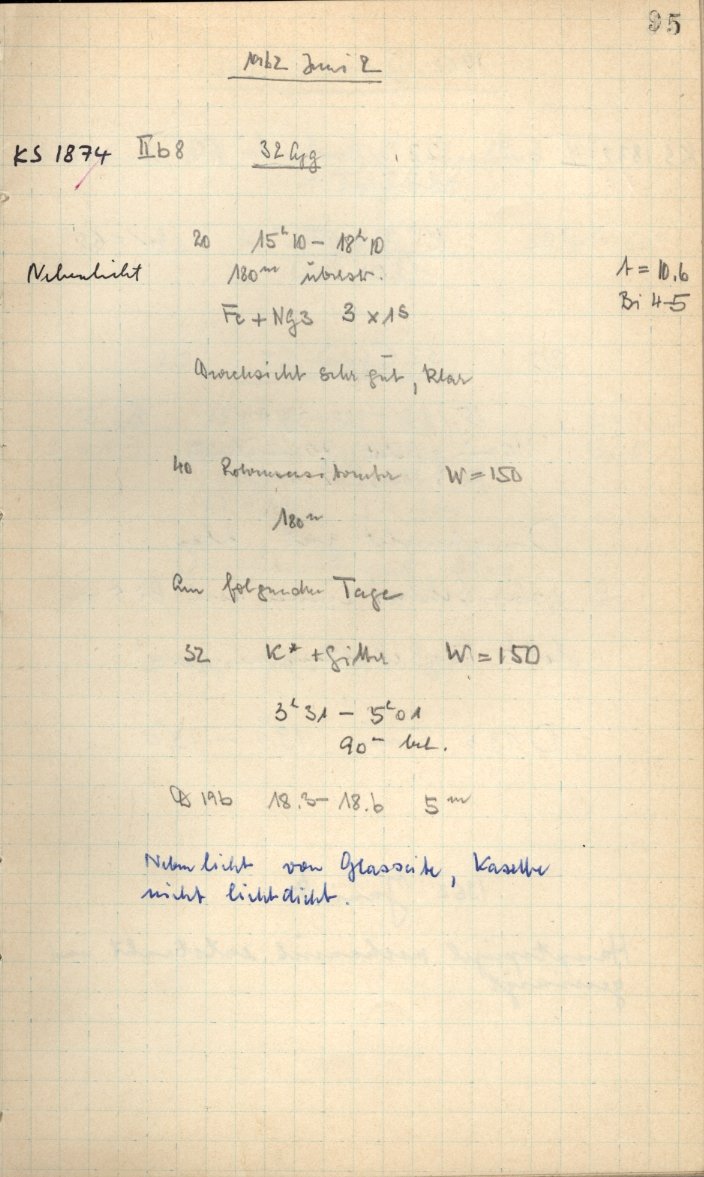 95
1962 Juni 2
KS 1874 II b 8 32 Cyg
20 15ʰ10 – 18ʰ10
Nebenlicht 180ᵐ überstr.
t = 10.6
Fe + NG3 3 x 1ˢ
Bi 4-5
Durchsicht sehr gut, klar
40 W = 150
180ᵐ
Am folgenden Tage
32 K* + Gitter W = 150
3ʰ31 – 5ʰ01
90ᵐ bel.
D 19b 18.3 – 18.6 5ᵐ
Nebenlicht von Glasseite, Kasette
nicht lichtdicht.